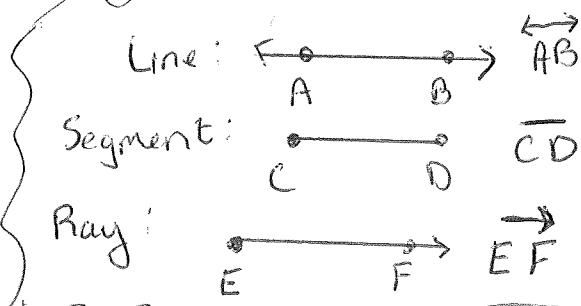 Line: A B AB
Segment: C D CD
Ray: E F EF